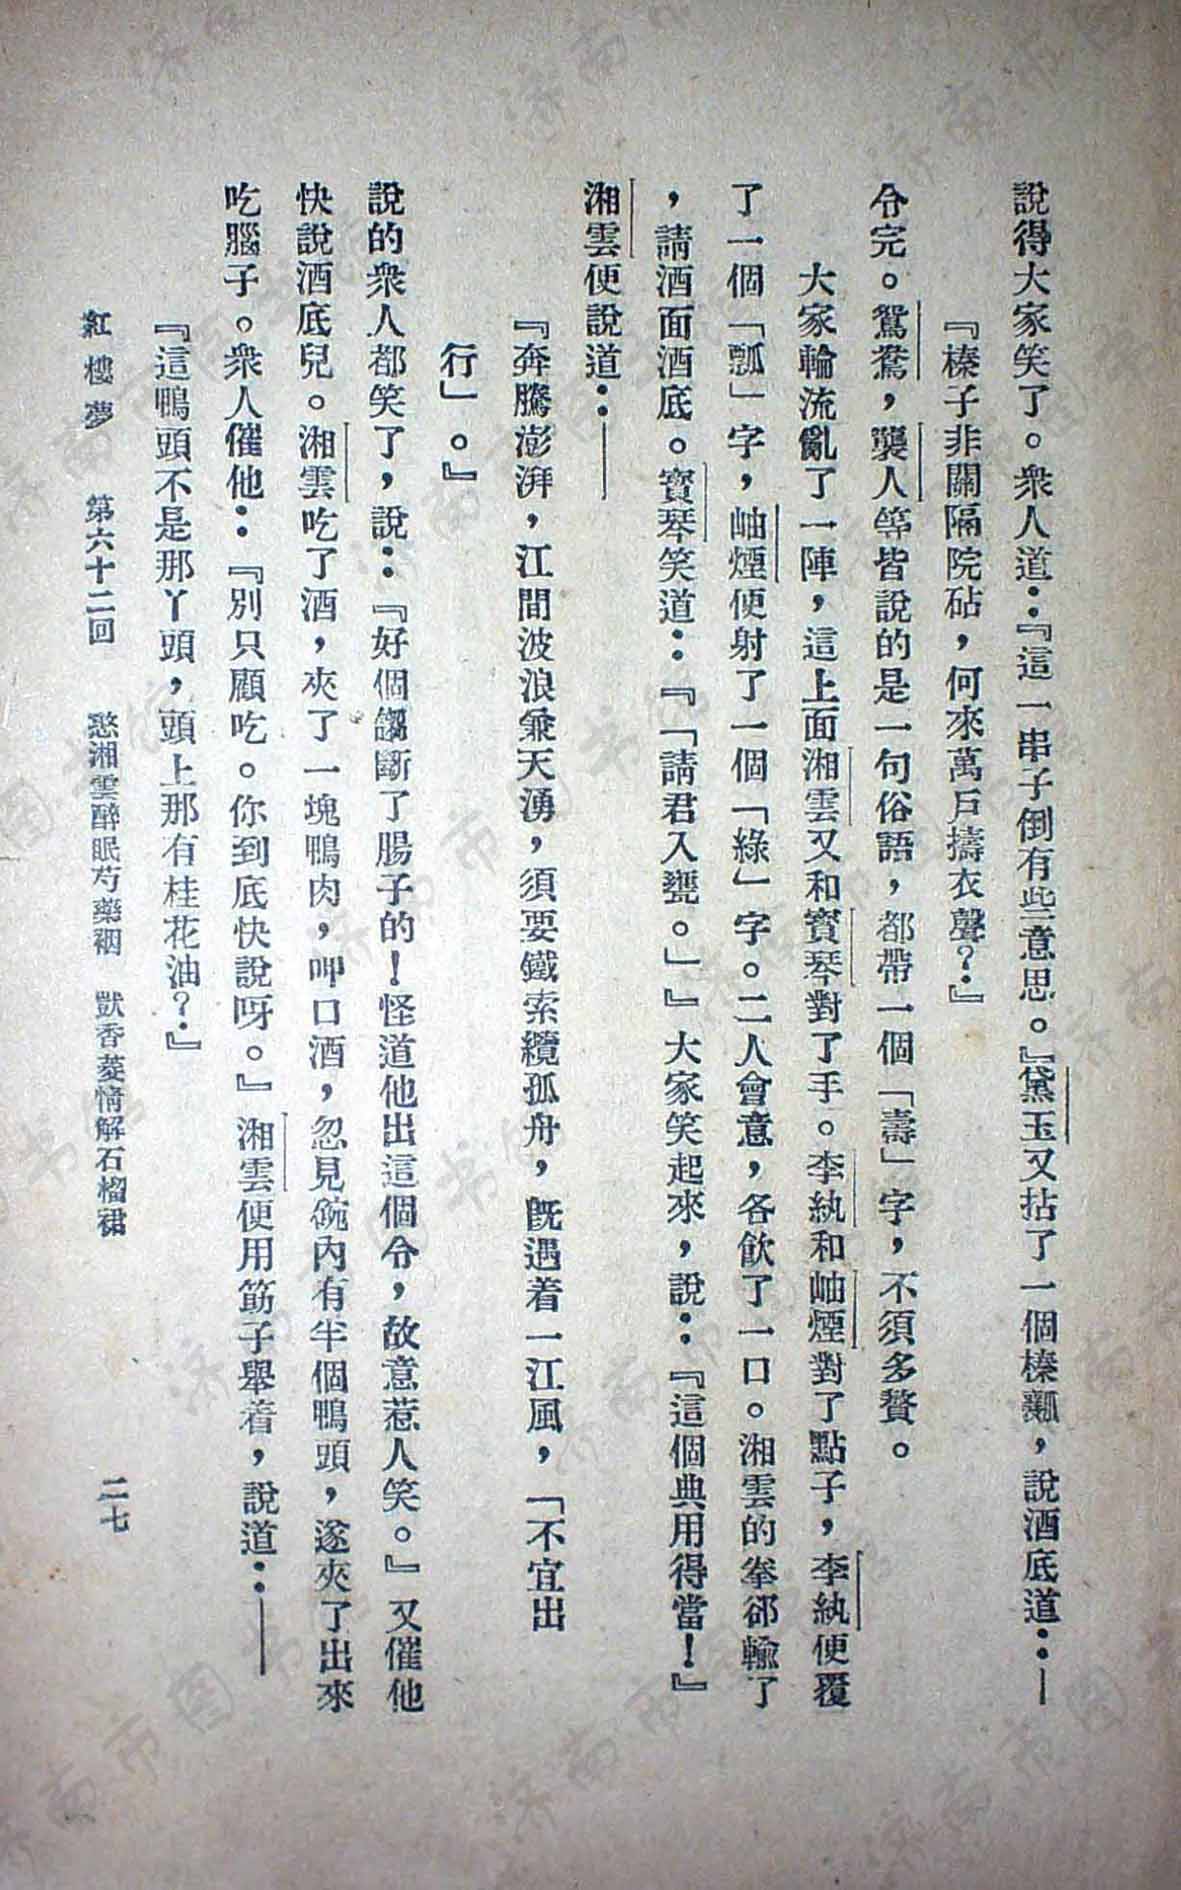 說得大家笑了。衆人道：『這一串子倒有些意思。』黛玉又拈了一個榛瓤，說酒底道：—
『榛子非關隔院砧，何來萬戶擣衣聲？』
令完。鴛鴦，襲人等皆說的是一句俗語，都帶一個「壽」字，不須多贅。
大家輪流亂了一陣，這上面湘雲又和寶琴對了手。李紈和岫煙對了點子，李紈便覆
了一個「瓢」字，岫煙便射了一個「綠」字。二人會意，各飲了一口。湘雲的拳卻輸了
，請酒面酒底。寶琴笑道：『「請君入甕。」』大家笑起來，說：『這個典用得當！』
湘雲便說道：——
『奔騰澎湃，江間波浪兼天湧，須要鐵索纜孤舟，旣遇着一江風，「不宜出
行」。』
說的衆人都笑了，說：『好個謅斷了腸子的！怪道他出這個令，故意惹人笑。』又催他
快說酒底兒。湘雲吃了酒，夾了一塊鴨肉，呷口酒，忽見碗內有半個鴨頭，遂夾了出來
吃腦子。衆人催他：『別只顧吃。你到底快說呀。』湘雲便用筯子舉着，說道：——
『這鴨頭不是那丫頭，頭上那有桂花油？』
紅樓夢 第六十二回 憨湘雲醉眠芍藥裀 獃香菱情解石榴裙 二七